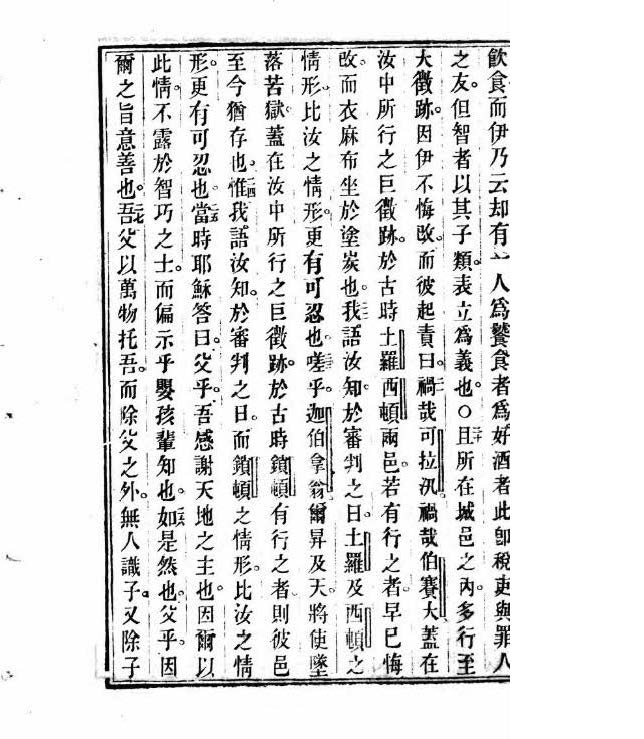 飲食而伊乃云却有一人為饕食者為好酒者此卽稅吏與罪人
之友。但智者以其子類。表立為義也。○且所在城邑之內。多行至
大徵跡。因伊不悔改。而彼起責曰。禍哉可拉汛。禍哉伯賽大。蓋在
汝中所行之巨徵跡。於古時土羅西頓兩邑。若有行之者。早已悔
改而衣麻布坐於塗炭也。我語汝知。於審判之日。土羅及西頓之
情形。比汝之情形。更有可忍也。嗟乎。迦伯拿翁爾昇及天。將使墜
落苦獄。蓋在汝中所行之巨徵跡。於古時鎖頓有行之者。則彼邑
至今猶存也。惟我語汝知。於審判之日。而鎖頓之情形。比汝之情
形。更有可忍也。當時耶穌答曰。父乎。吾感謝天地之主也。因爾以
此情。不露於智巧之士。而偏示乎嬰孩輩知也。如是然也。父乎。因
爾之旨意善也。吾父以萬物托吾。而除父之外。無人識子。又除子